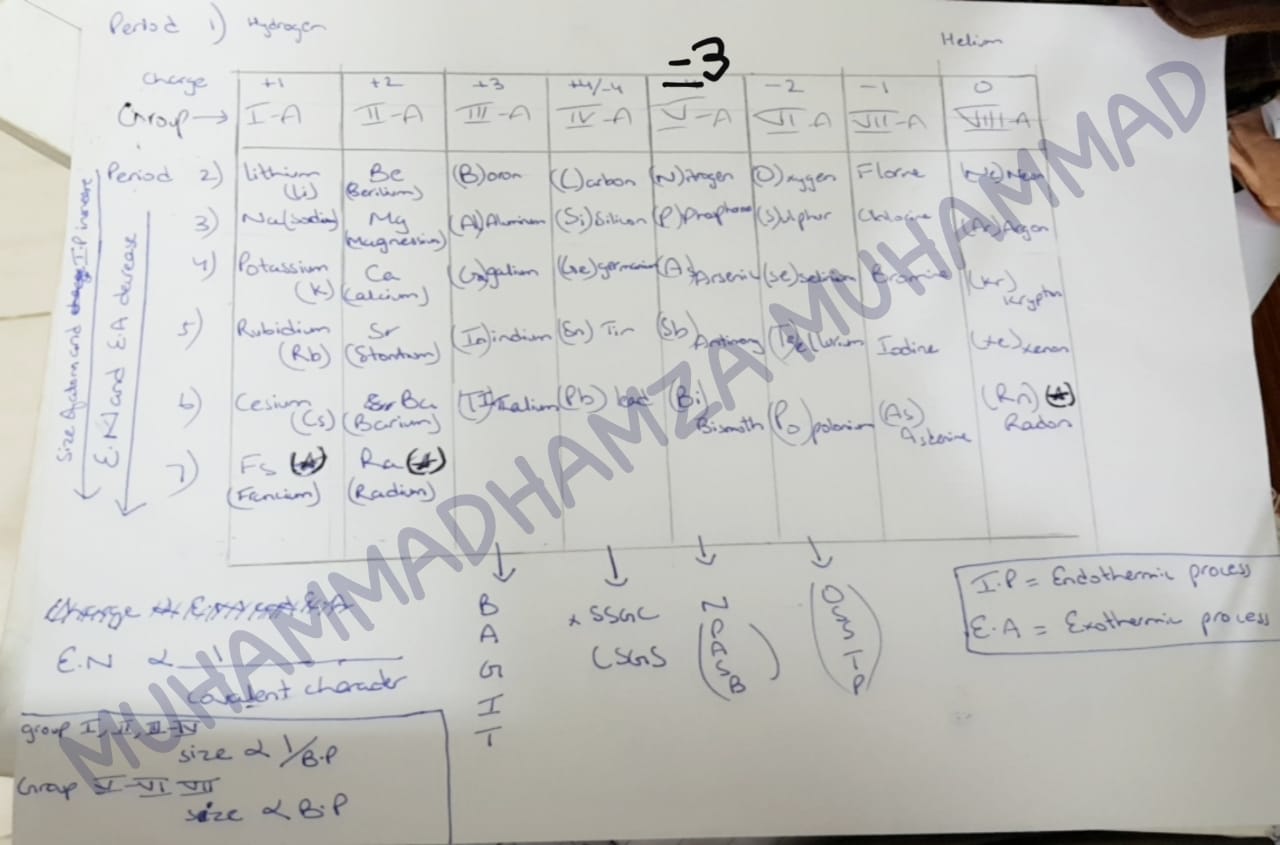 Period 1) Hydrogen Helium
Charge +1 +2 +3 +4/-4 -3 -2 -1 0
Group → I-A II-A III-A IV-A V-A VI-A VII-A VIII-A
Period 2) Lithium (Li) Be (Berilium) (B)oron (C)arbon (N)itrogen (O)xygen Florine (Ne)Neon
3) Na(Sodium) Mg (Magnessium) (Al)Aluminum (Si)Silicon (P) (S)ulphur Chlorine (Ar)Argon
4) Potassium (K) Ca (Calcium) (Ga)galium (Ge)germanium (As) Arsenic (Se)selinium Bromine (Kr) Krypton
5) Rubidium (Rb) Sr (Stontum) (In)indium (Sn) Tin (Sb) Antimony (Te)llurium Iodine (Xe)xenon
6) Cesium (Cs) Ba (Barium) (Tl)Thalium (Pb) lead (Bi) Bismoth (Po)polonium (As) Asterine (Rn) Radon
7) Fs (Francium) Ra (Radium)
Size of atom and I.P increase
E.N and E.A decrease
I.P = Endothermic process
E.A = Exothermic process
E.N ∝ 1
covalent character
B
A
G
I
T
x SSGC
CSGS
N
P
A
S
B
O
S
S
T
P
group I, II, III-IV
size ∝ 1/B.P
Group V-VI VII
size ∝ B.P
MUHAMMADHAMZA MUHAMMAD